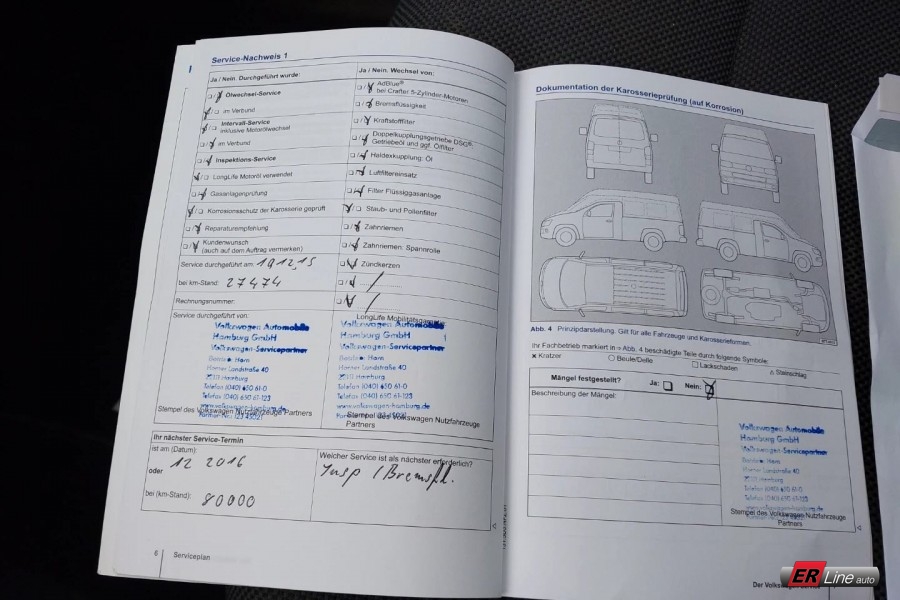 Service-Nachweis 1
Ja / Nein. Durchgeführt wurde:
Ölwechsel-Service
im Verbund
Intervall-Service
inklusive Motorölwechsel
im Verbund
Inspektions-Service
LongLife Motoröl verwendet
Gasanlagenprüfung
Korrosionsschutz der Karosserie geprüft
Reparaturempfehlung
Kundenwunsch
(auch auf dem Auftrag vermerken)
Service durchgeführt am: 191215
bei km-Stand: 27474
Rechnungsnummer:
Ja / Nein. Wechsel von:
AdBlue®
bei Crafter 5-Zylinder-Motoren
Bremsflüssigkeit
Kraftstofffilter
Doppelkupplungsgetriebe DSG®:
Getriebeöl und ggf. Ölfilter
Haldexkupplung: Öl
Luftfiltereinsatz
Filter Flüssiggasanlage
Staub- und Pollenfilter
Zahnriemen
Zahnriemen: Spannrolle
Zündkerzen
Service durchgeführt von:
Volkswagen Automobile
Hamburg GmbH
Volkswagen-Servicepartner
Horn
Horner Landstraße 40
Hamburg
Telefon (040) 650 61-0
Telefax (040) 650 61-123
www.volkswagen-hamburg.de
Stempel des Volkswagen Nutzfahrzeuge Partners
LongLife
Volkswagen Automobile
Hamburg GmbH
Volkswagen-Servicepartner
Horn
Horner Landstraße 40
Hamburg
Telefon (040) 650 61-0
Telefax (040) 650 61-123
www.volkswagen-hamburg.de
Stempel des Volkswagen Nutzfahrzeuge
Partners
Ihr nächster Service-Termin
ist am (Datum):
12 2016
oder
bei (km-Stand):
80000
Welcher Service ist als nächster erforderlich?
Insp / Bremsfl.
6 Serviceplan
Dokumentation der Karosserieprüfung (auf Korrosion)
Abb. 4 Prinzipdarstellung. Gilt für alle Fahrzeuge und Karosserieformen.
Ihr Fachbetrieb markiert in Abb. 4 beschädigte Teile durch folgende Symbole:
x Kratzer
Beule/Delle
Lackschaden
Steinschlag
Mängel festgestellt? Ja: Nein:
Beschreibung der Mängel:
Volkswagen Automobile
Hamburg GmbH
Volkswagen-Servicepartner
Horn
Horner Landstraße 40
Hamburg
Telefon (040) 650 61-0
Telefax (040) 650 61-123
www.volkswagen-hamburg.de
Stempel des Volkswagen Nutzfahrzeuge
Partners
Der
ER Line auto